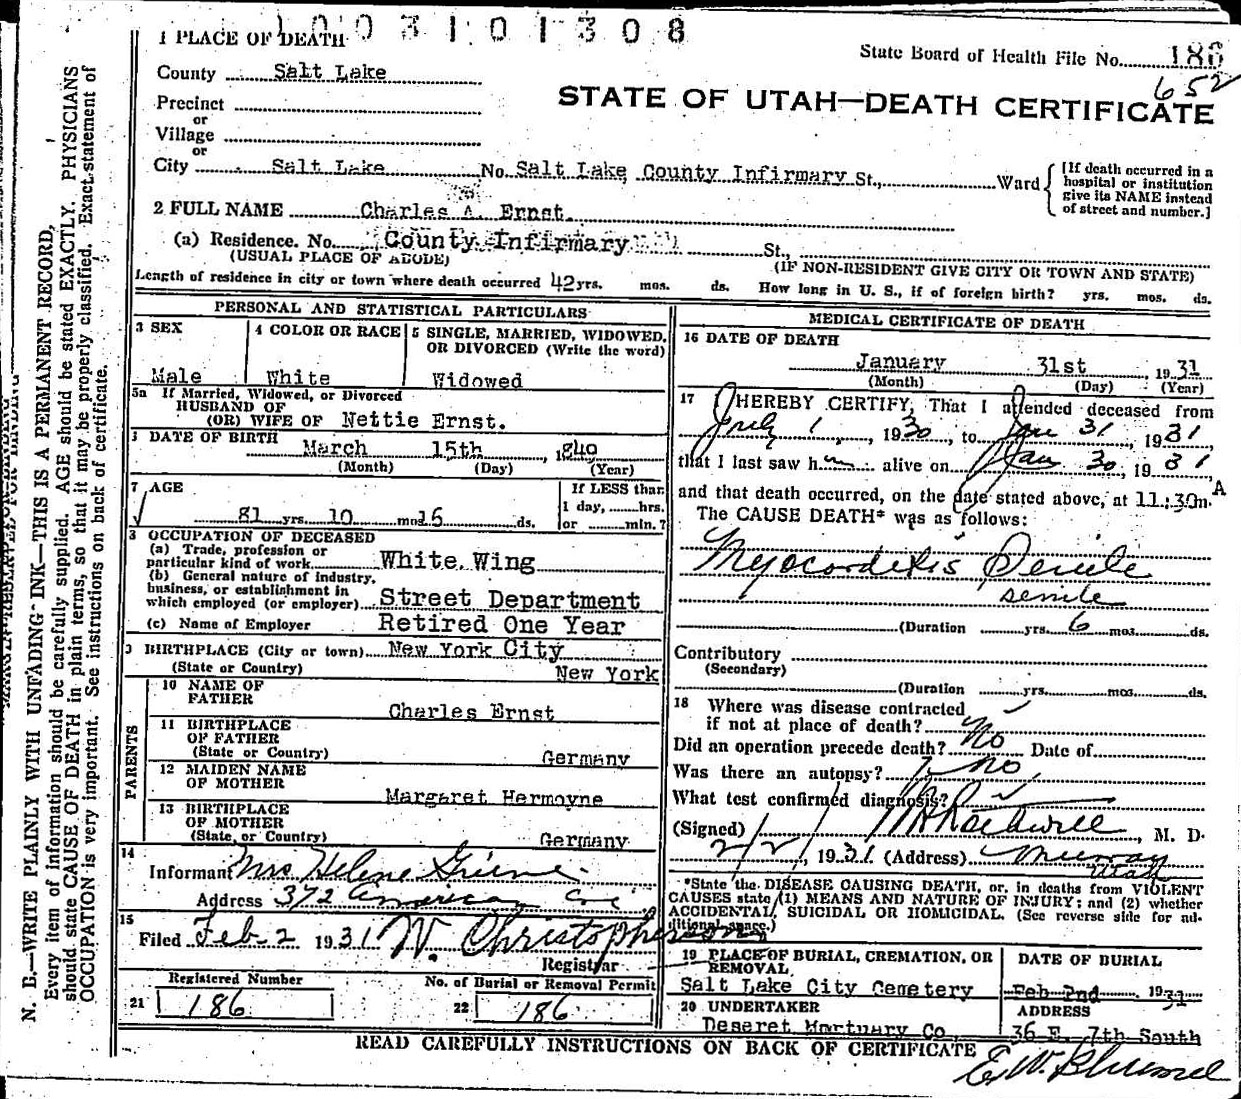 1003101308
1 PLACE OF DEATH
State Board of Health File No. 186
652
County Salt Lake
STATE OF UTAH—DEATH CERTIFICATE
Precinct
or
Village
or
City Salt Lake No. Salt Lake County Infirmary St., Ward
[If death occurred in a
hospital or institution
give its NAME instead
of street and number.]
2 FULL NAME Charles A. Ernst.
(a) Residence. No. County Infirmary St.,
(USUAL PLACE OF ABODE)
(IF NON-RESIDENT GIVE CITY OR TOWN AND STATE)
Length of residence in city or town where death occurred 42 yrs. mos. ds. How long in U. S., if of foreign birth? yrs. mos. ds.
PERSONAL AND STATISTICAL PARTICULARS
3 SEX
4 COLOR OR RACE
5 SINGLE, MARRIED, WIDOWED,
OR DIVORCED (Write the word)
Male White Widowed
5a If Married, Widowed, or Divorced
HUSBAND OF
(OR) WIFE OF Nettie Ernst.
DATE OF BIRTH
March 15th 1840
(Month) (Day) (Year)
7 AGE
If LESS than
1 day, hrs.
or min.?
81 yrs. 10 mos. 16 ds.
OCCUPATION OF DECEASED
(a) Trade, profession or
particular kind of work White Wing
(b) General nature of industry,
business, or establishment in
which employed (or employer) Street Department
(c) Name of Employer Retired One Year
BIRTHPLACE (City or town) New York City
(State or Country) New York
PARENTS
10 NAME OF
FATHER
Charles Ernst
11 BIRTHPLACE
OF FATHER
(State or Country) Germany
12 MAIDEN NAME
OF MOTHER
Margaret Hermoyne
13 BIRTHPLACE
OF MOTHER
(State or Country) Germany
14
Informant Mrs Helene Greene
Address 372 American Ave
15
Filed Feb 2 1931 W. Christopherson
Registrar
Registered Number
No. of Burial or Removal Permit
21 186
22 186
MEDICAL CERTIFICATE OF DEATH
16 DATE OF DEATH
January 31st, 1931
(Month) (Day) (Year)
17 I HEREBY CERTIFY, That I attended deceased from
July 1, 1930, to Jan 31, 1931
that I last saw him alive on Jan 30, 1931
and that death occurred, on the date stated above, at 11:30 A m.
The CAUSE DEATH* was as follows:
Myocarditis Senile
senile
(Duration yrs. 6 mos. ds.
Contributory
(Secondary)
(Duration yrs. mos. ds.
18 Where was disease contracted
if not at place of death?
Did an operation precede death? No Date of
Was there an autopsy? no
What test confirmed diagnosis?
(Signed) M. D.
2/2/, 1931 (Address) Murray
Utah
*State the DISEASE CAUSING DEATH, or, in deaths from VIOLENT
CAUSES state (1) MEANS AND NATURE OF INJURY; and (2) whether
ACCIDENTAL, SUICIDAL OR HOMICIDAL. (See reverse side for ad-
ditional space.)
19 PLACE OF BURIAL, CREMATION, OR
REMOVAL
DATE OF BURIAL
Salt Lake City Cemetery Feb 2nd 1931
20 UNDERTAKER
ADDRESS
Deseret Mortuary Co. 36 E. 7th South
READ CAREFULLY INSTRUCTIONS ON BACK OF CERTIFICATE
MARGIN RESERVED FOR BINDING
N. B.—WRITE PLAINLY WITH UNFADING INK—THIS IS A PERMANENT RECORD.
Every item of information should be carefully supplied. AGE should be stated EXACTLY. PHYSICIANS
should state CAUSE OF DEATH in plain terms, so that it may be properly classified. Exact statement of
OCCUPATION is very important. See instructions on back of certificate.